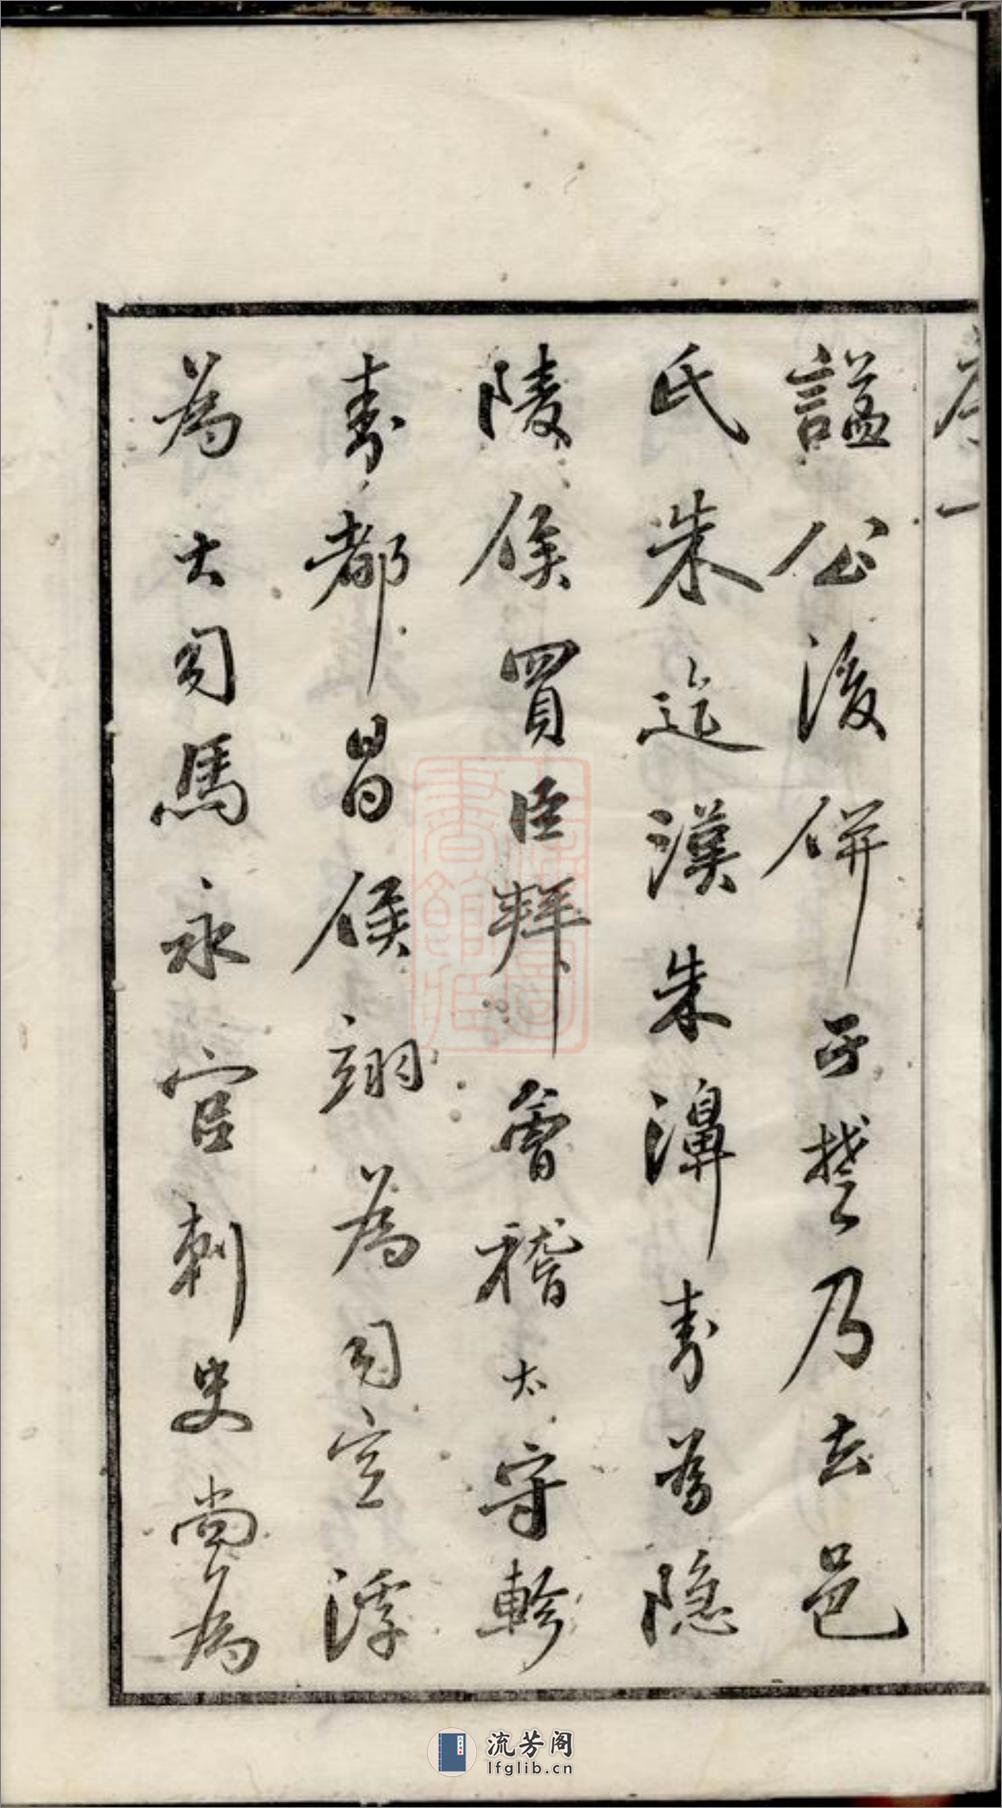 序一
謚公後併于楚乃去邑
氏朱迄漢朱濞封為隱
陵侯買臣拜會稽太守軫
封都昌侯翊為司空浮
為大司馬永官刺史尚為
流芳阁
lfglib.cn